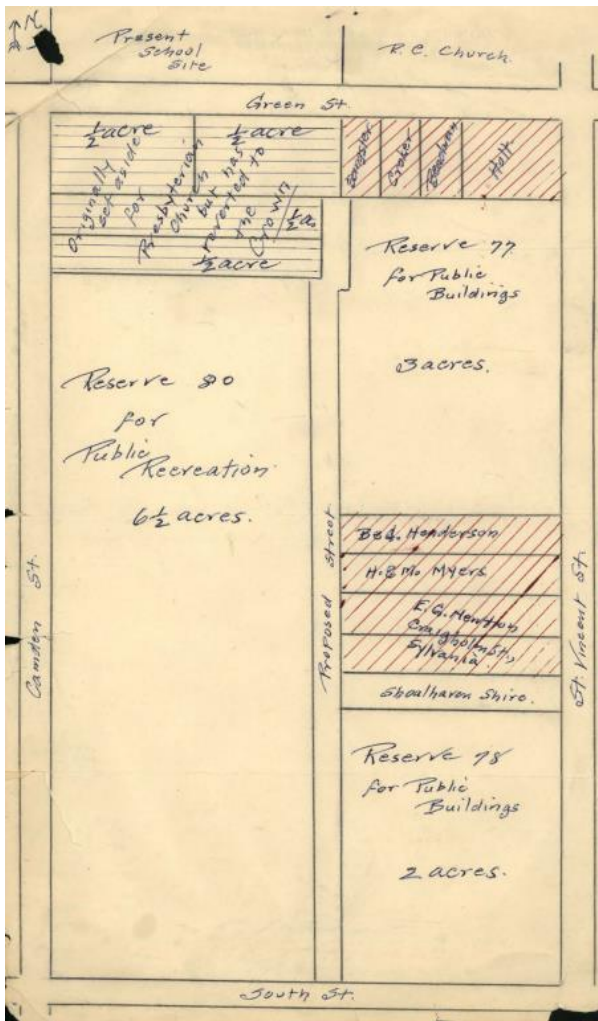 N
Present
School
Site
R.C. Church.
Green St.
½ acre
½ acre
Originally
set aside
for
Presbyterian
Church
but has
reverted to
the
Crown
½ a.
½ acre
Croker
Holt
Reserve 77
for Public
Buildings
3 acres.
Reserve 80
for
Public
Recreation
6½ acres.
Camden St.
Proposed Street
St. Vincent St.
Henderson
Myers
E.G. Newton
Craigholm St.,
Sylvania
Shoalhaven Shire.
Reserve 78
for Public
Buildings
2 acres.
South St.